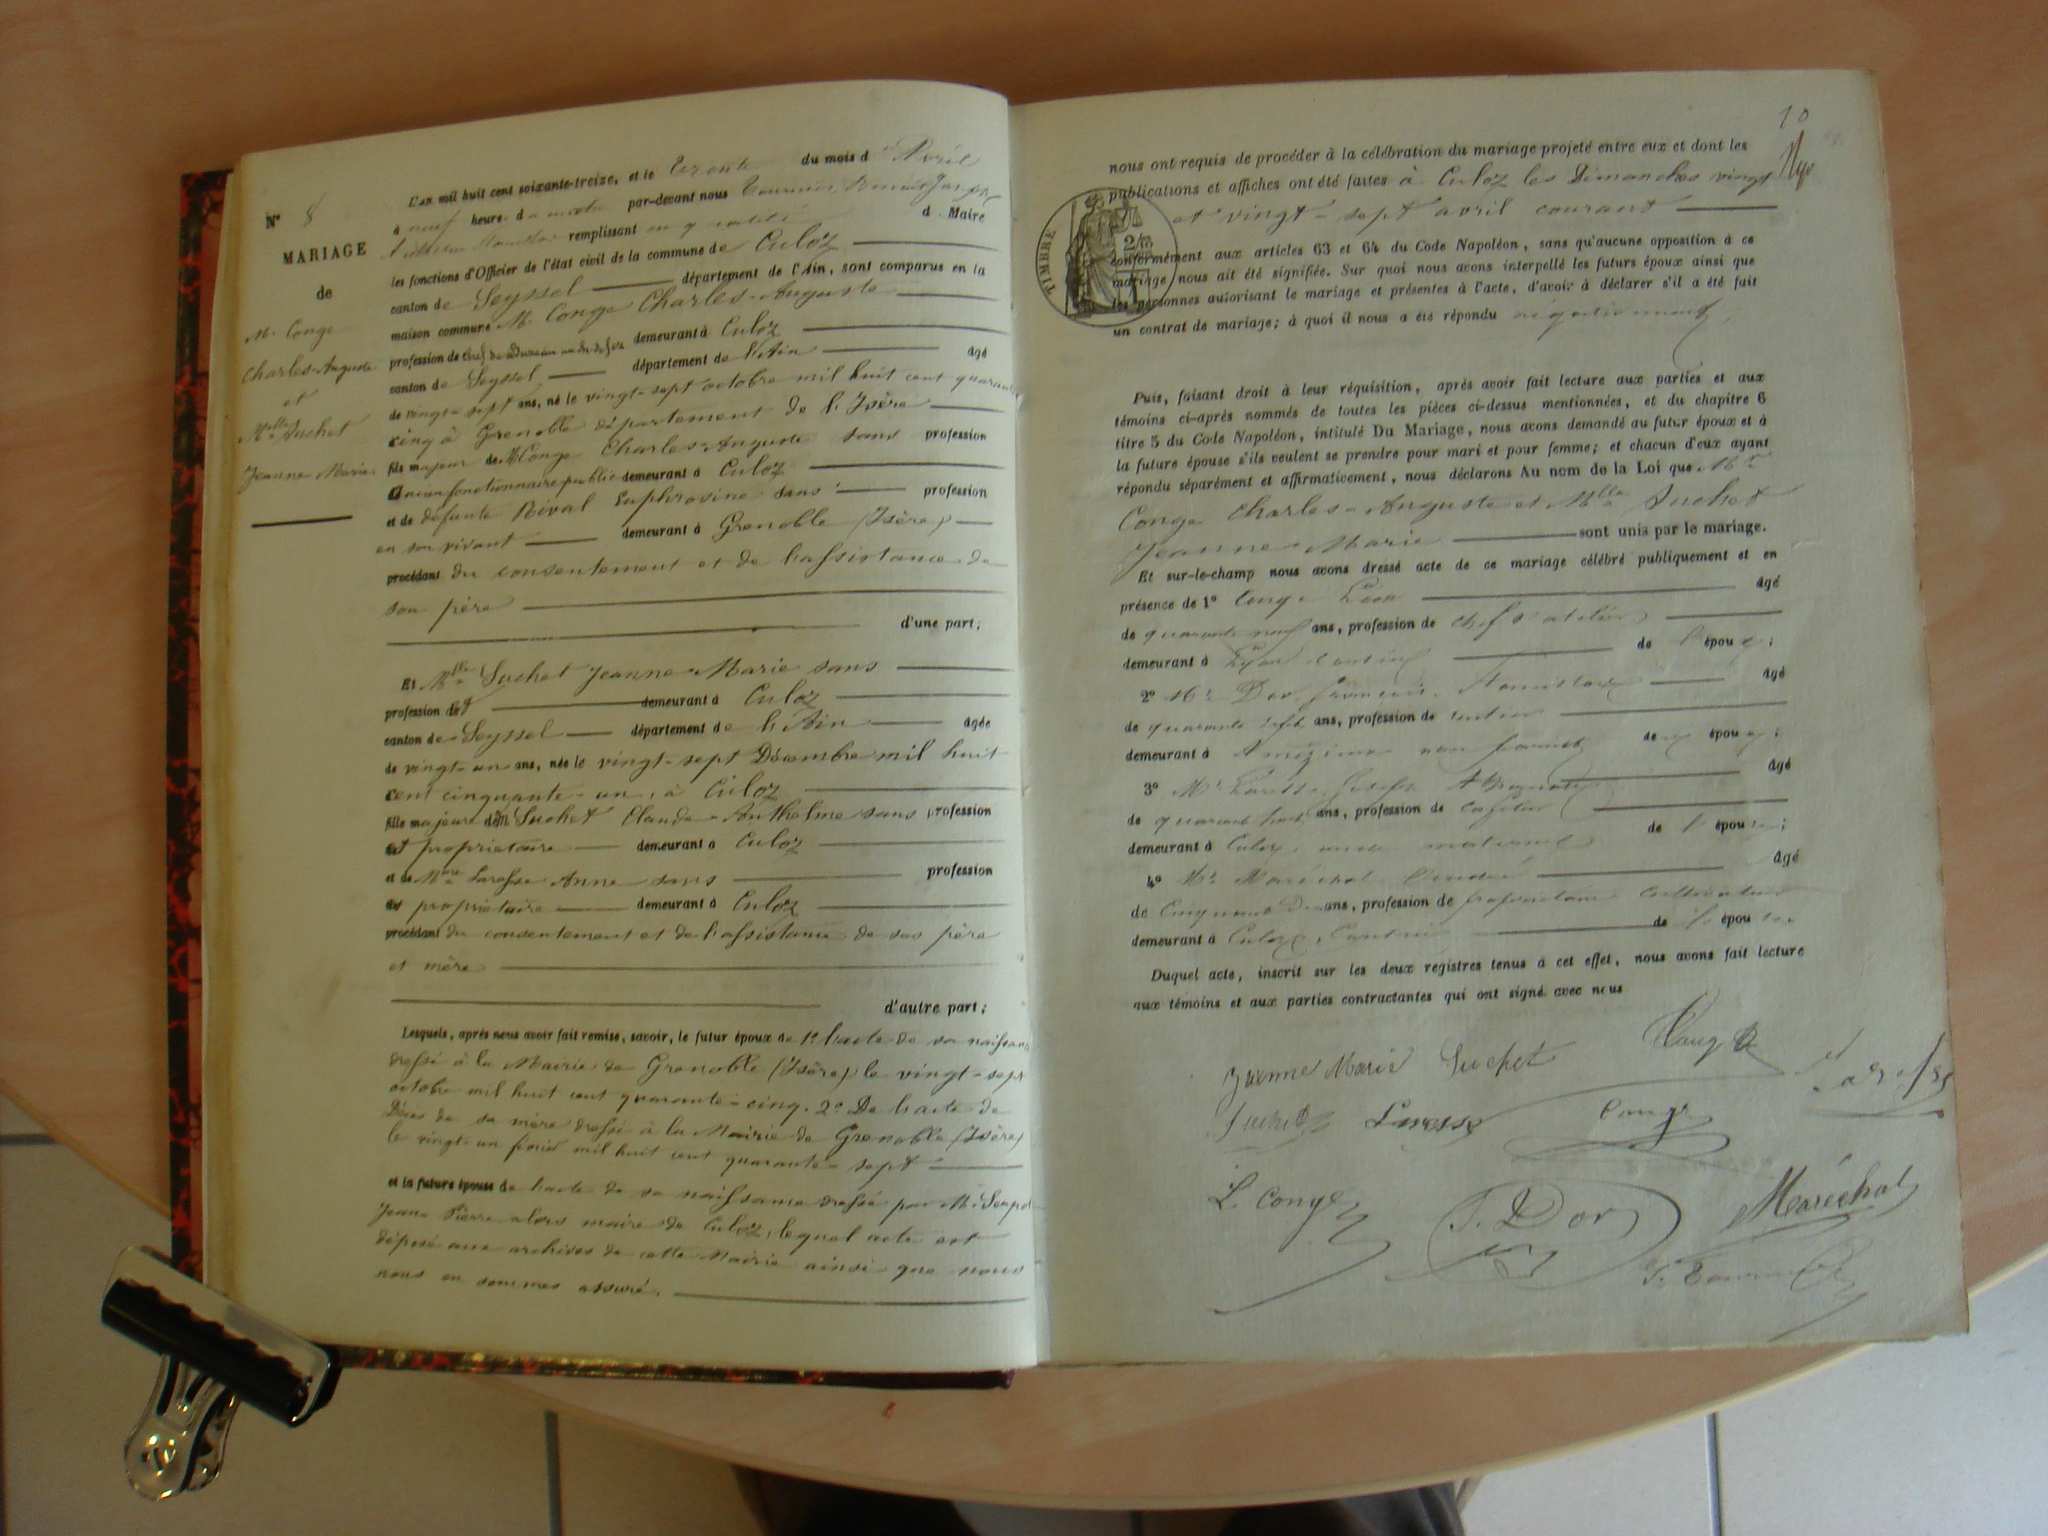 N° 8
MARIAGE
de
Mr Conge
Charles-Auguste
et
Melle Suchet
Jeanne Marie
L'an mil huit cent soixante-treize, et le trente du mois d' Avril
à neuf heures d par-devant nous Joseph
remplissant en qualité d Maire
les fonctions d'Officier de l'état civil de la commune de Culoz
canton de Seyssel département de l'Ain, sont comparus en la
maison commune Mr Conge Charles-Auguste
profession de demeurant à Culoz
canton de Seyssel département de l'Ain âgé
de vingt-sept ans, né le vingt-sept octobre mil huit cent quarante
cinq à Grenoble département de l'Isère
fils majeur de Mr Conge Charles-Auguste sans profession
demeurant à Culoz
et de défunte Rival Euphrosine sans profession
en son vivant demeurant à Grenoble (Isère)
procédant du consentement et de l'assistance de
son père
d'une part;
Et Melle Suchet Jeanne-Marie sans
profession demeurant à Culoz
canton de Seyssel département de l'Ain âgée
de vingt-un ans, née le vingt-sept Décembre mil huit
cent cinquante-un, à Culoz
fille majeure de Mr Suchet Claude-Anthelme sans profession
propriétaire demeurant à Culoz
et de Mme Larosse Anne sans profession
propriétaire demeurant à Culoz
procédant du consentement et de l'assistance de ses père
et mère
d'autre part;
Lesquels, après nous avoir fait remise, savoir, le futur époux de 1° l'acte de sa naissance
dressé à la Mairie de Grenoble (Isère) le vingt-sept
octobre mil huit cent quarante-cinq. 2° De l'acte de
Décès de sa mère dressé à la Mairie de Grenoble (Isère)
le vingt-un février mil huit cent quarante-sept
et la future épouse de l'acte de sa naissance dressé par Mr
Jean-Pierre alors maire de Culoz, lequel acte est
déposé aux archives de cette Mairie ainsi que nous
nous en sommes assuré.
10
nous ont requis de procéder à la célébration du mariage projeté entre eux et dont les
publications et affiches ont été faites à Culoz les Dimanches vingt
et vingt-sept avril courant
TIMBRE
conformément aux articles 63 et 64 du Code Napoléon, sans qu'aucune opposition à ce
mariage nous ait été signifiée. Sur quoi nous avons interpellé les futurs époux ainsi que
les personnes autorisant le mariage et présentes à l'acte, d'avoir à déclarer s'il a été fait
un contrat de mariage; à quoi il nous a été répondu négativement
Puis, faisant droit à leur réquisition, après avoir fait lecture aux parties et aux
témoins ci-après nommés de toutes les pièces ci-dessus mentionnées, et du chapitre 6
titre 5 du Code Napoléon, intitulé Du Mariage, nous avons demandé au futur époux et à
la future épouse s'ils veulent se prendre pour mari et pour femme; et chacun d'eux ayant
répondu séparément et affirmativement, nous déclarons Au nom de la Loi que Mr
Conge Charles-Auguste et Melle Suchet
Jeanne-Marie sont unis par le mariage.
Et sur-le-champ nous avons dressé acte de ce mariage célébré publiquement et en
présence de 1° Conge Léon âgé
de quarante neuf ans, profession de chef d'atelier
demeurant à Lyon de l'époux;
2° Mr Dor François âgé
de quarante sept ans, profession de
demeurant à de époux;
3° Mr Larosse Joseph âgé
de quarante huit ans, profession de
demeurant à Culoz, oncle maternel de l'épouse;
4° Mr Maréchal âgé
de cinquante ans, profession de propriétaire cultivateur
demeurant à Culoz, de l'épouse
Duquel acte, inscrit sur les deux registres tenus à cet effet, nous avons fait lecture
aux témoins et aux parties contractantes qui ont signé avec nous
Jeanne Marie Suchet Conge
Suchet Larosse Conge Larosse
L. Conge F. Dor Maréchal